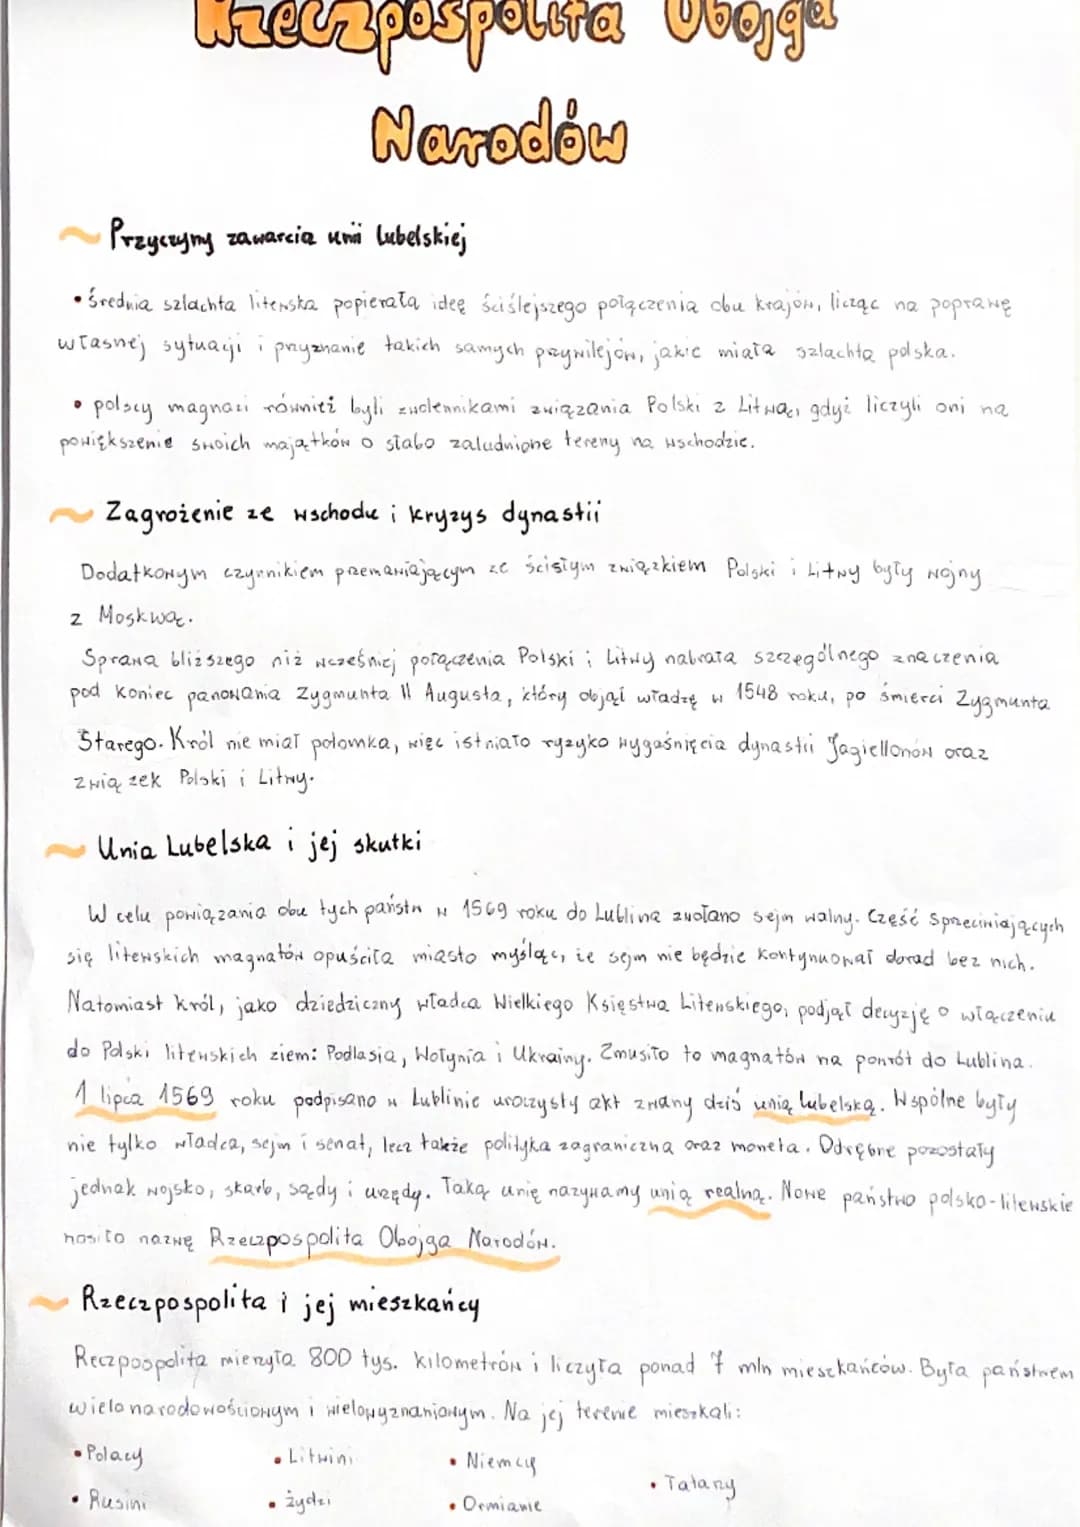 Rzeczpospolita Obojga
Narodów
~ Przyczyny zawarcia unii lubelskiej
• Średnia szlachta litewska popierała ideę ściślejszego połączenia obu krajów, licząc na poprawę
własnej sytuacji i przyznanie takich samych przywilejów, jakie miała szlachta polska.
• polscy magnaci również byli zwolennikami związania Polski z Litwą, gdyż liczyli oni na
powiększenie swoich majątków o słabo zaludnione tereny na wschodzie.
~ Zagrożenie ze wschodu i kryzys dynastii
Dodatkowym czynnikiem przemawiającym ze ścisłym związkiem Polski i Litwy były wojny
z Moskwą.
Sprawa bliższego niż wcześniej połączenia Polski i Litwy nabrała szczególnego znaczenia
pod koniec panowania Zygmunta II Augusta, który objął władzę w 1548 roku, po śmierci Zygmunta
Starego. Król nie miał potomka, więc istniało ryzyko wygaśnięcia dynastii Jagiellonów oraz
związek Polski i Litwy.
~ Unia Lubelska i jej skutki
W celu powiązania obu tych państw w 1569 roku do Lublina zwołano sejm walny. Część sprzeciwiających
się litewskich magnatów opuściła miasto myśląc, że sejm nie będzie kontynuował obrad bez nich.
Natomiast król, jako dziedziczny władca Wielkiego Księstwa Litewskiego, podjął decyzję o włączeniu
do Polski litewskich ziem: Podlasia, Wołynia i Ukrainy. Zmusiło to magnatów na powrót do Lublina.
1 lipca 1569 roku podpisano w Lublinie uroczysty akt zwany dziś unią lubelską. Wspólne były
nie tylko władca, sejm i senat, lecz także polityka zagraniczna oraz moneta. Odrębne pozostały
jednak wojsko, skarb, sądy i urzędy. Taką unię nazywamy unią realną. Nowe państwo polsko-litewskie
nosiło nazwę Rzeczpospolita Obojga Narodów.
~ Rzeczpospolita i jej mieszkańcy
Reczpospolita mierzyła 800 tys. kilometrów i liczyła ponad 7 mln mieszkańców. Była państwem
wielonarodowościowym i wielowyznaniowym. Na jej terenie mieszkali:
• Polacy • Litwini • Niemcy • Tatarzy
• Rusini • żydzi • Ormianie